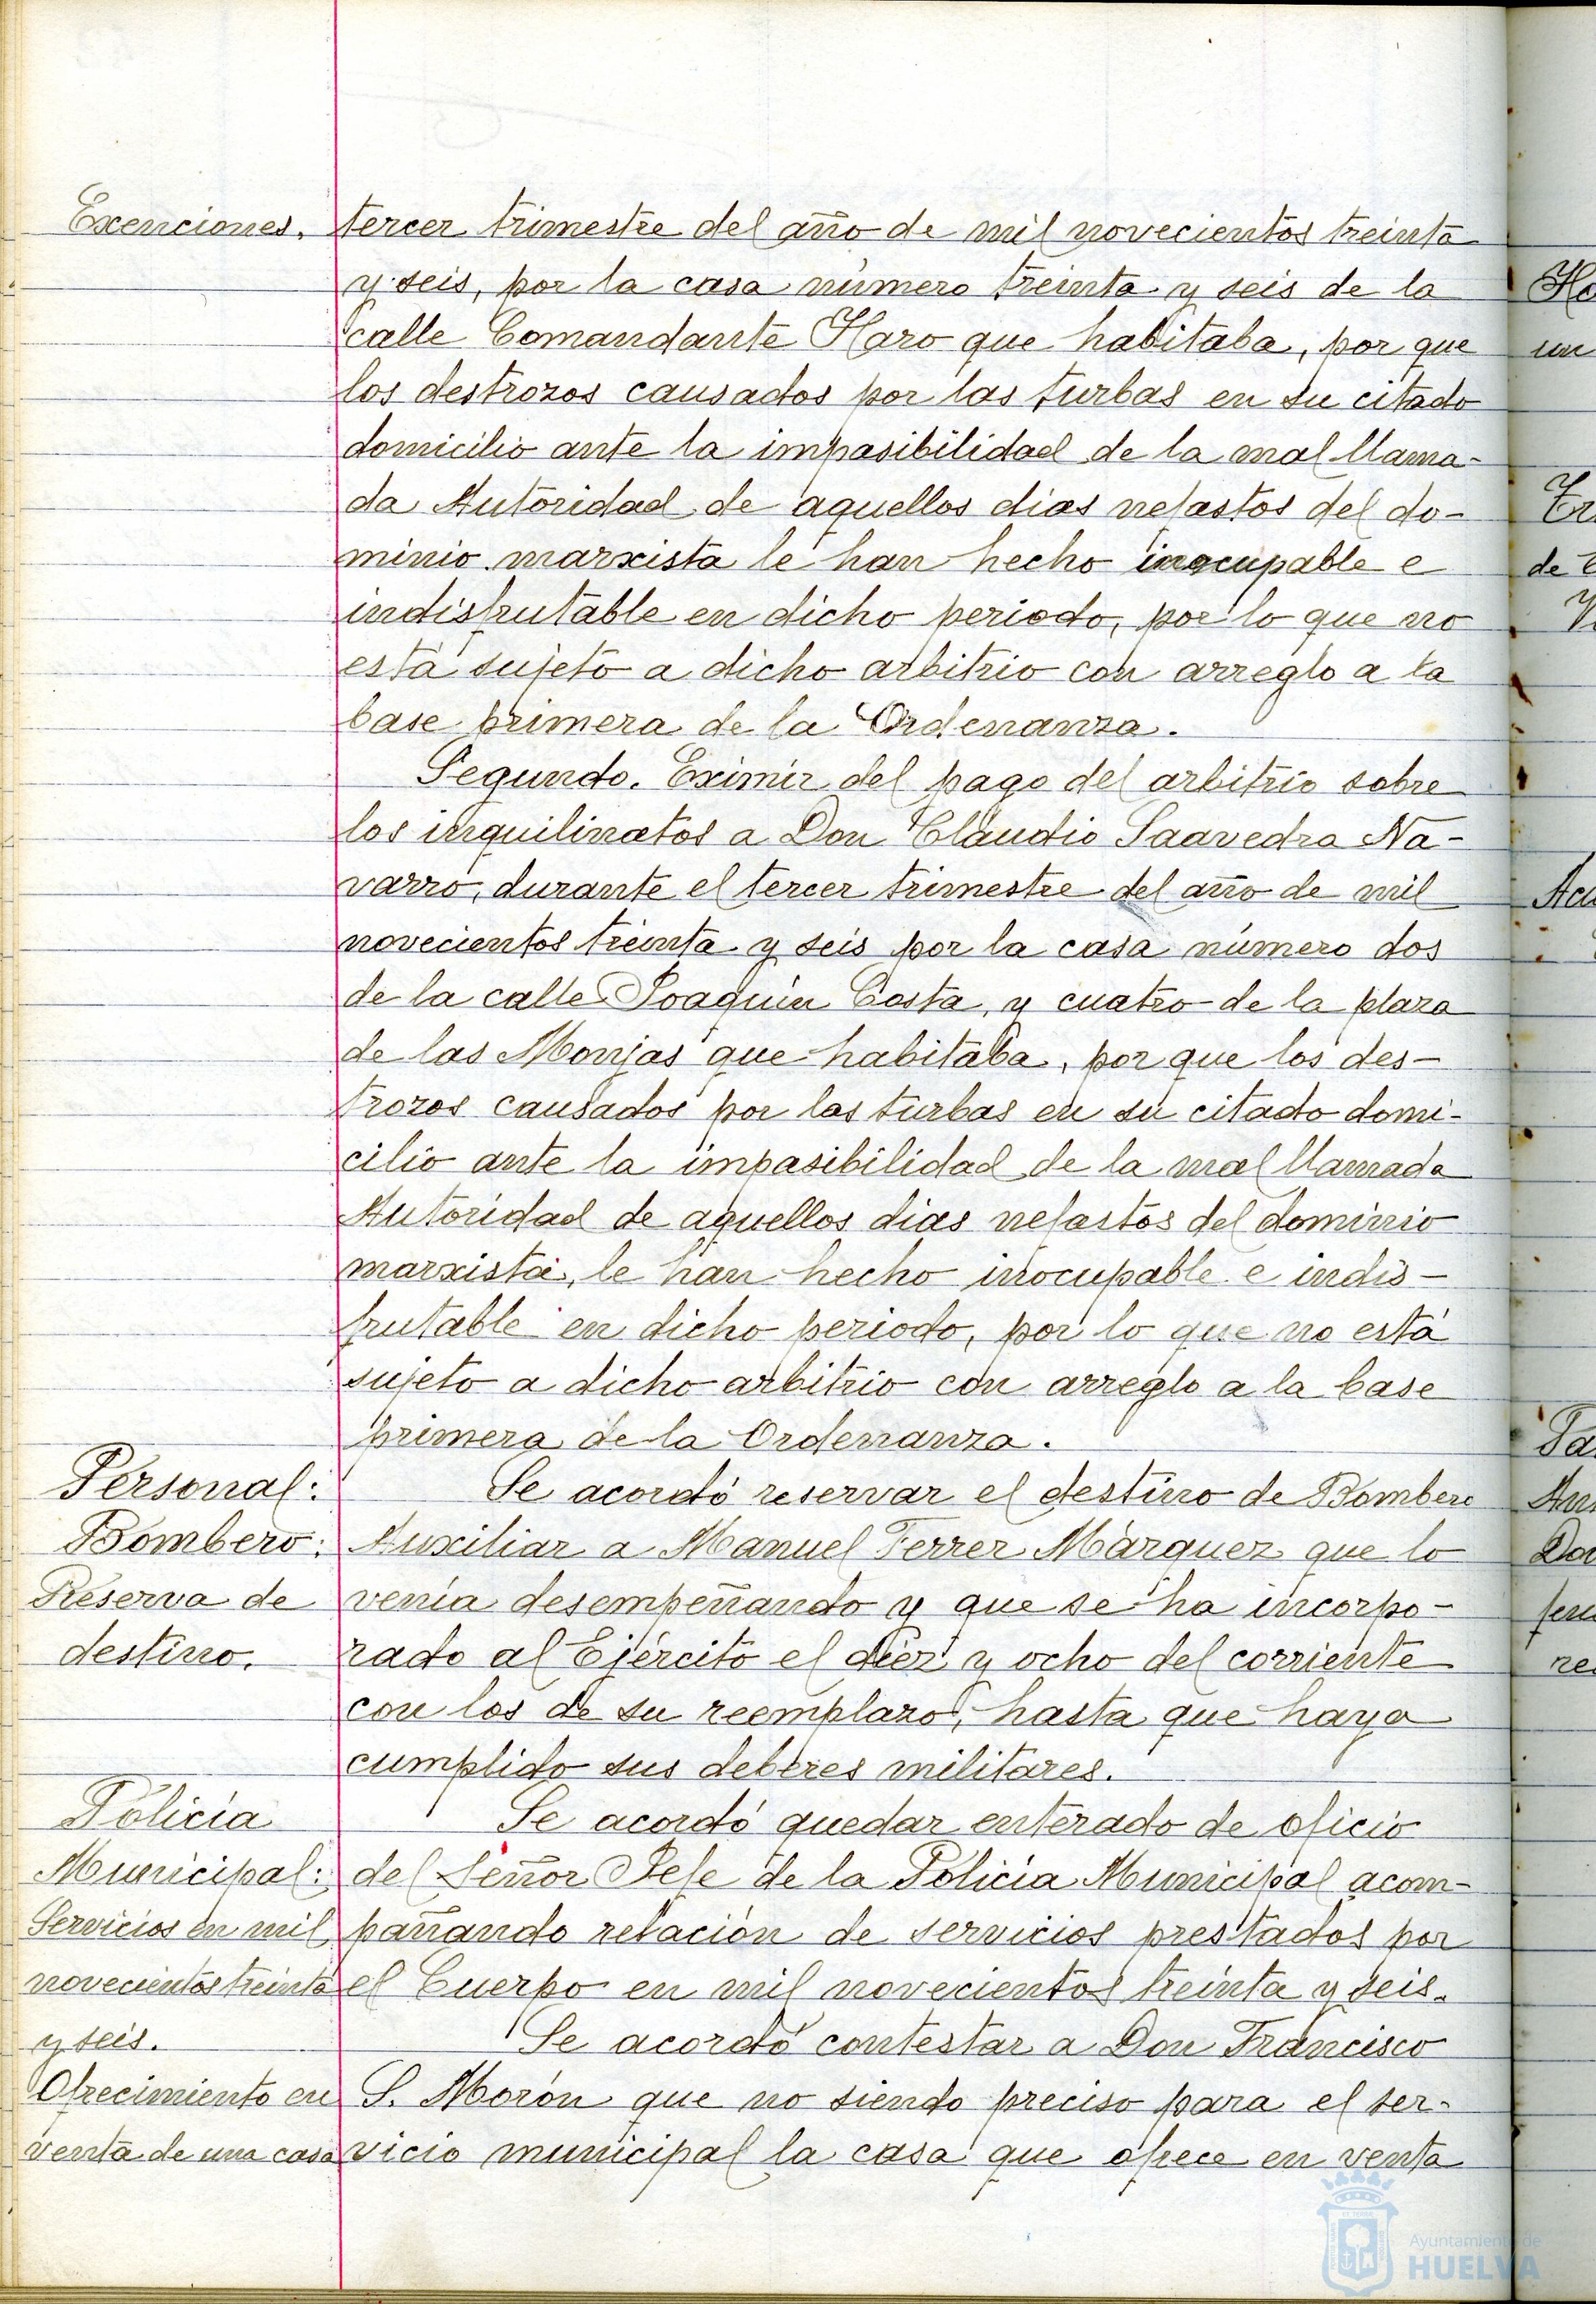 Exenciones. tercer trimestre del año de mil novecientos treinta
y seis, por la casa número treinta y seis de la
calle Comandante Haro que habitaba, por que
los destrozos causados por las turbas en su citado
domicilio ante la impasibilidad de la mal llama-
da Autoridad de aquellos dias nefastos del do-
minio marxista le han hecho inocupable e
indisfrutable en dicho periodo, por lo que no
está sujeto a dicho arbitrio con arreglo a la
base primera de la Ordenanza.
Segundo. Eximir del pago del arbitrio sobre
los inquilinatos a Don Claudio Saavedra Na-
varro, durante el tercer trimestre del año de mil
novecientos treinta y seis por la casa número dos
de la calle Joaquin Costa, y cuatro de la plaza
de las Monjas que habitaba, por que los des-
trozos causados por las turbas en su citado domi-
cilio ante la impasibilidad de la mal llamada
Autoridad de aquellos dias nefastos del dominio
marxista, le han hecho inocupable e indis-
frutable en dicho periodo, por lo que no está
sujeto a dicho arbitrio con arreglo a la base
primera de la Ordenanza.
Personal: Se acordó reservar el destino de Bombero
Bombero: Auxiliar a Manuel Ferrer Márquez que lo
Reserva de venía desempeñando y que se ha incorpo-
destino. rado al Ejército el diez y ocho del corriente
con los de su reemplazo, hasta que haya
cumplido sus deberes militares.
Policía Se acordó quedar enterado de oficio
Municipal: del Señor Jefe de la Policía Municipal acom-
Servicios en mil pañando relación de servicios prestados por
novecientos treinta el Cuerpo en mil novecientos treinta y seis.
y seis. Se acordó contestar a Don Francisco
Ofrecimiento en S. Morón que no siendo preciso para el ser-
venta de una casa vicio municipal la casa que ofrece en venta
Ayuntamiento de
HUELVA